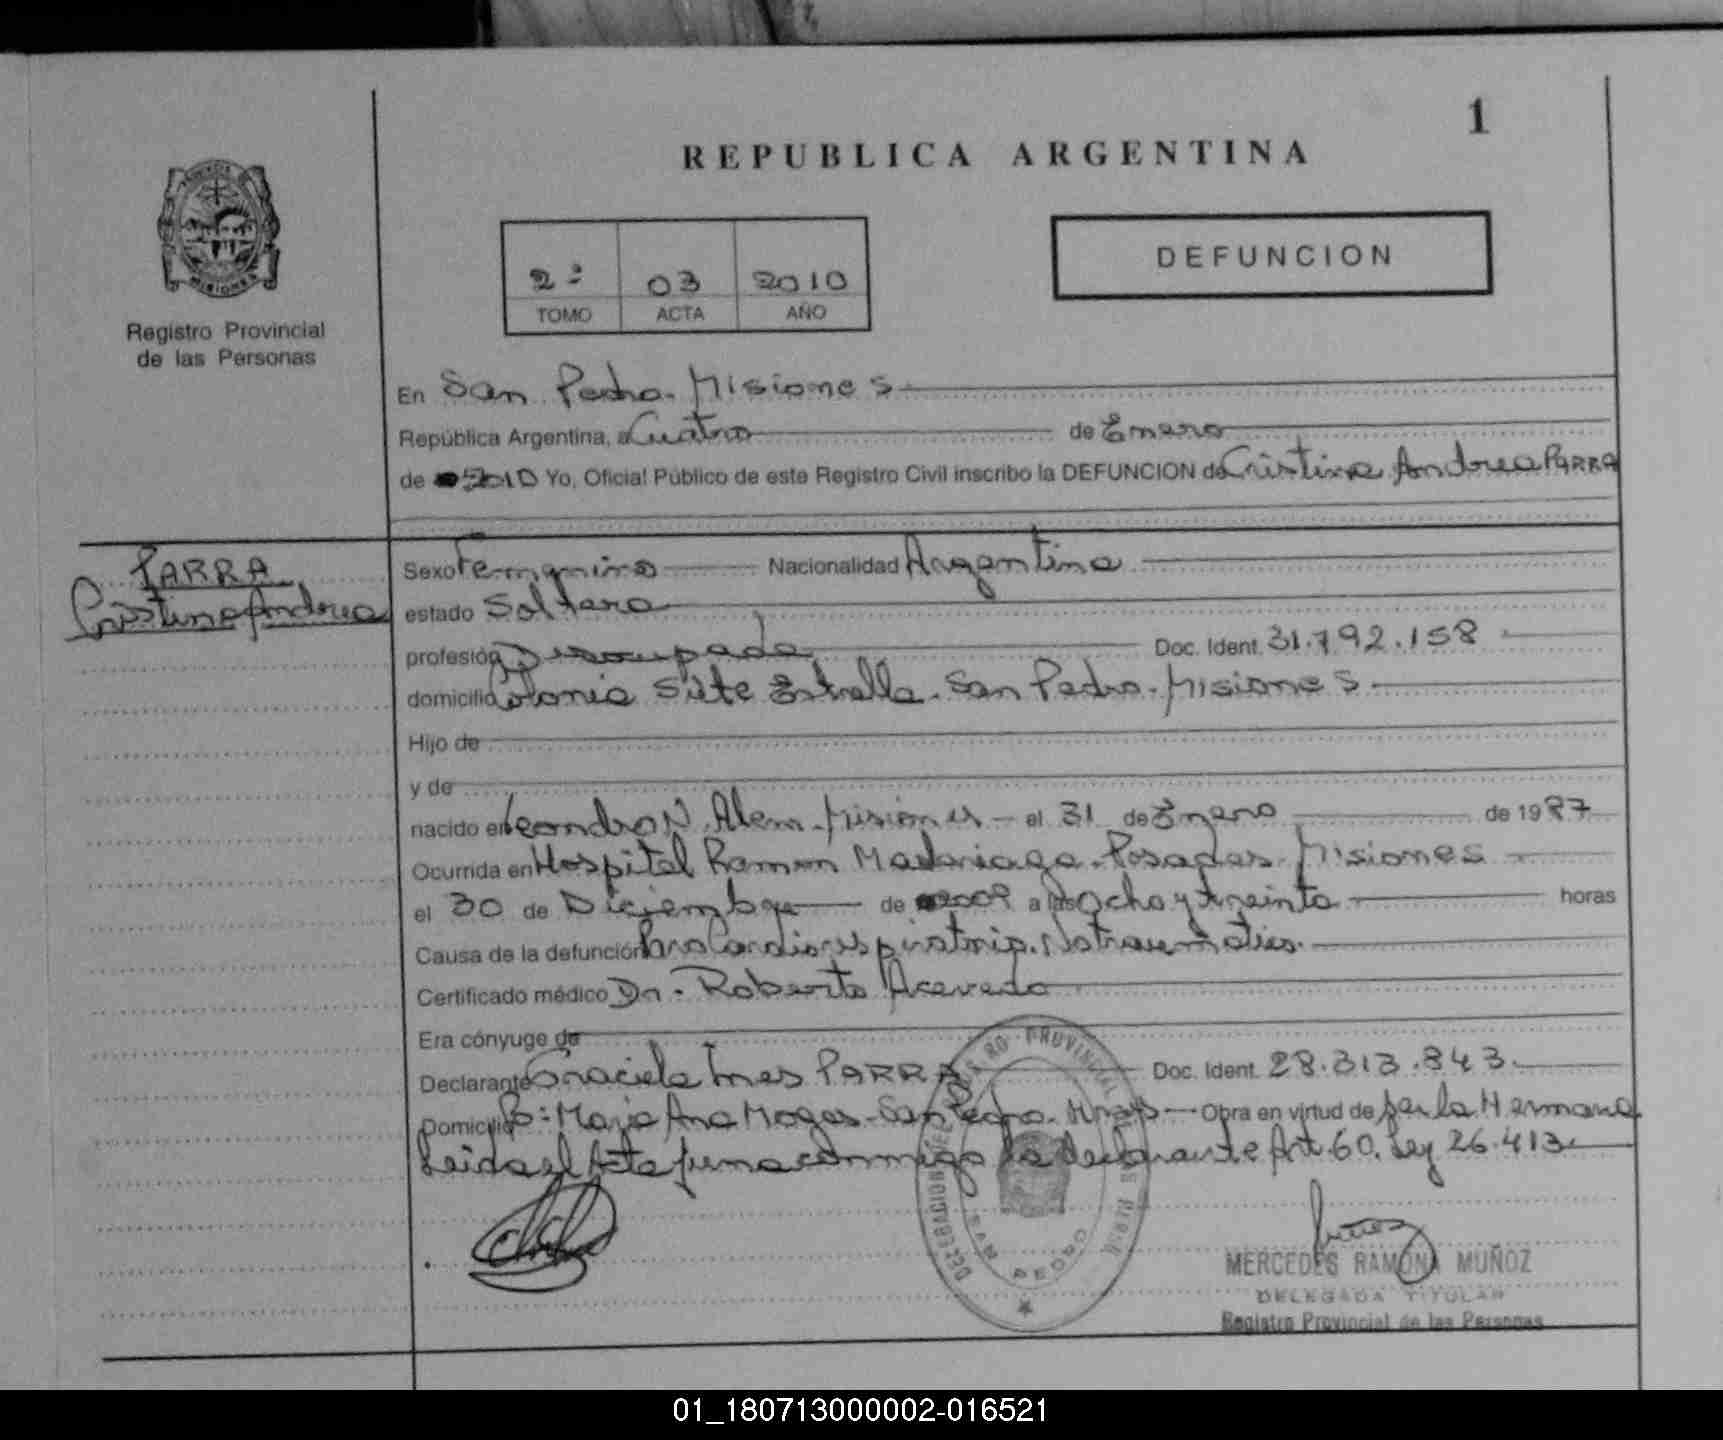 1
REPUBLICA ARGENTINA
MISIONES
Registro Provincial
de las Personas
2º 03 2010
TOMO ACTA AÑO
DEFUNCION
En San Pedro. Misiones
República Argentina, a Cuatro de Enero
de 2010 Yo, Oficial Público de este Registro Civil inscribo la DEFUNCION de Cristina Andrea PARRA
PARRA
Cristina Andrea
Sexo Femenino Nacionalidad Argentina
estado Soltera
profesión Desocupada Doc. Ident. 31.792.158
domicilio Colonia Siete Estrella. San Pedro. Misiones
Hijo de
y de
nacido en Leandro N. Alem. Misiones el 31 de Enero de 1987
Ocurrida en Hospital Ramon Madariaga. Posadas. Misiones
el 30 de Diciembre de 2009 a las Ocho y treinta horas
Causa de la defunción Paro Cardiorespiratorio. No traumatico.
Certificado médico Dr. Roberto Acevedo
Era cónyuge de
Declarante Graciela Ines PARRA Doc. Ident. 28.313.843
Domicilio Bº: Maria Ana Mogas. San Pedro. Mnes Obra en virtud de ser la Hermana
Leida el Acta firma conmigo la declarante Art. 60. Ley 26.413
SAN PEDRO
MERCEDES RAMONA MUÑOZ
DELEGADA TITULAR
Registro Provincial de las Personas
01_180713000002-016521